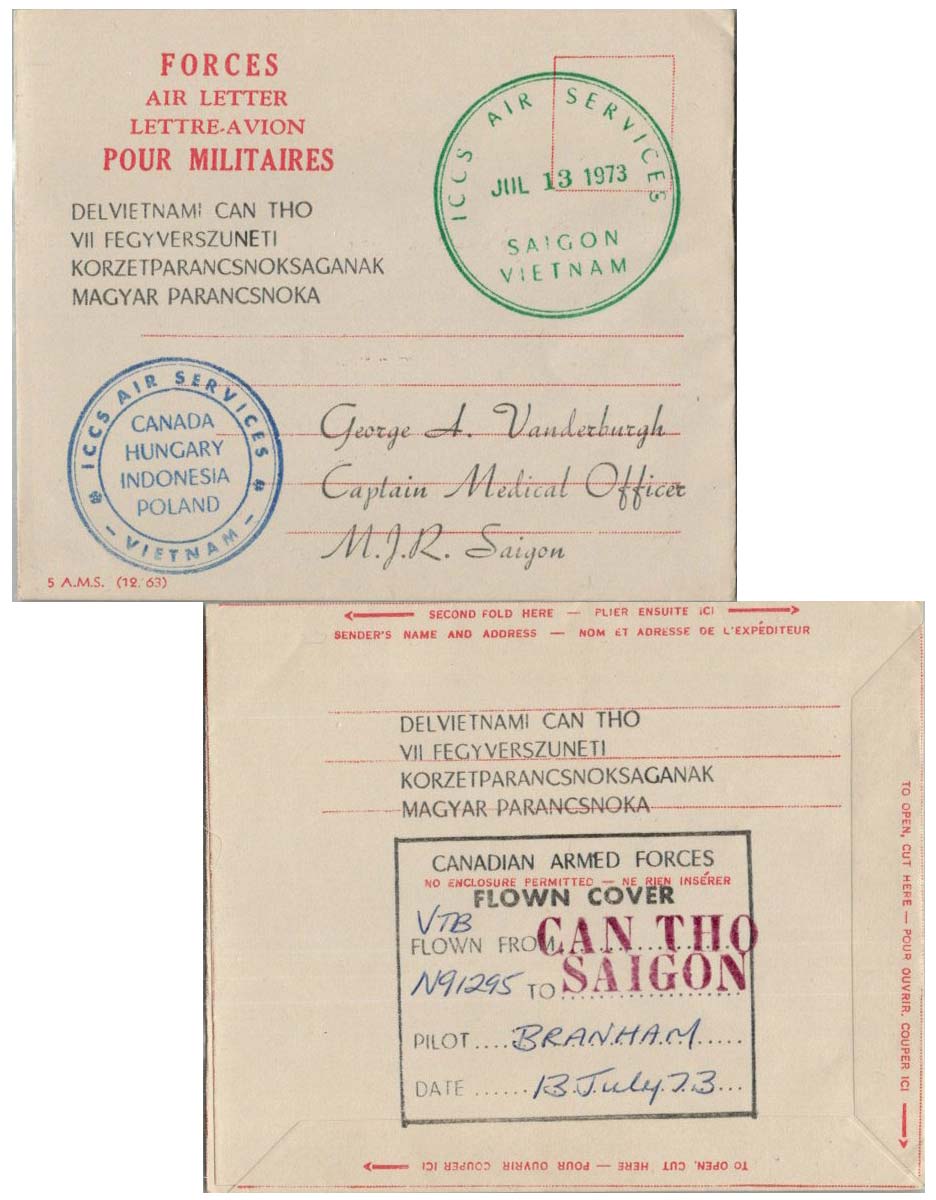 FORCES
AIR LETTER
LETTRE-AVION
POUR MILITAIRES
DELVIETNAMI CAN THO
VII FEGYVERSZUNETI
KORZETPARANCSNOKSAGANAK
MAGYAR PARANCSNOKA
ICCS AIR SERVICES
JUL 13 1973
SAIGON
VIETNAM
ICCS AIR SERVICES
CANADA
HUNGARY
INDONESIA
POLAND
- VIETNAM -
George A. Vanderburgh
Captain Medical Officer
M.J.R. Saigon
5 A.M.S. (12.'63)
SECOND FOLD HERE — PLIER ENSUITE ICI
SENDER'S NAME AND ADDRESS — NOM ET ADRESSE DE L'EXPÉDITEUR
DELVIETNAMI CAN THO
VII FEGYVERSZUNETI
KORZETPARANCSNOKSAGANAK
MAGYAR PARANCSNOKA
CANADIAN ARMED FORCES
NO ENCLOSURE PERMITTED — NE RIEN INSÉRER
FLOWN COVER
VTB
FLOWN FROM CAN THO
N91295 TO SAIGON
PILOT .... BRANHAM .....
DATE ...... 13 July 73 ...
TO OPEN, CUT HERE — POUR OUVRIR, COUPER ICI
TO OPEN, CUT HERE — POUR OUVRIR COUPER ICI